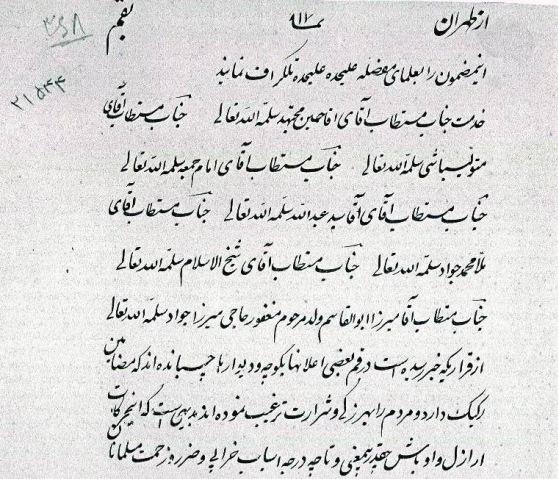 از طهران نمره ۹۱۲ بقم
۳۶۸
۲۱۵۴۴
این مضمون را بعلمای مفصله علیحده علیحده تلگراف نمایند
خدمت جناب مستطاب آقای آقا حسین مجتهد سلمه الله تعالی جناب مستطاب آقای
متولیباشی سلمه الله تعالی جناب مستطاب آقای امام جمعه سلمه الله تعالی
جناب مستطاب آقای آقا سید عبدالله سلمه الله تعالی جناب مستطاب آقای
ملا محمد جواد سلمه الله تعالی جناب مستطاب آقای شیخ الاسلام سلمه الله تعالی
جناب مستطاب آقا میرزا ابوالقاسم ولد مرحوم مغفور حاجی میرزا جواد سلمه الله تعالی
از قراریکه خبر رسیده است در قم بعضی اعلانها بکوچه و دیوارها چسبانده اند که مضامین
رکیک دارد و مردم را بهرزگی و شرارت ترغیب نموده اند بدیهی است که اینحرکات
اراذل و اوباش چقدر و تا چه درجه اسباب خرابی و ضرر و زحمت مسلمانان